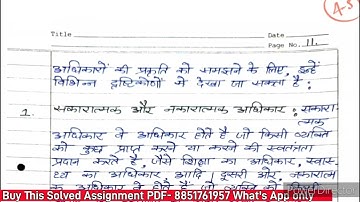 A-5
Title
Date
Page No. 11.
अधिकारों की प्रकृति को समझने के लिए, इन्हें
विभिन्न दृष्टिकोणों में देखा जा सकता है:
1. सकारात्मक और नकारात्मक अधिकार: सकारा-
त्मक
अधिकार वे अधिकार होते हैं जो किसी व्यक्ति
को कुछ प्राप्त करने या करने की स्वतंत्रता
प्रदान करते हैं, जैसे शिक्षा का अधिकार, स्वास-
थ्य का अधिकार, आदि। दूसरी ओर, नकारात्म
Buy This Solved Assignment PDF- 8851761957 What's App only